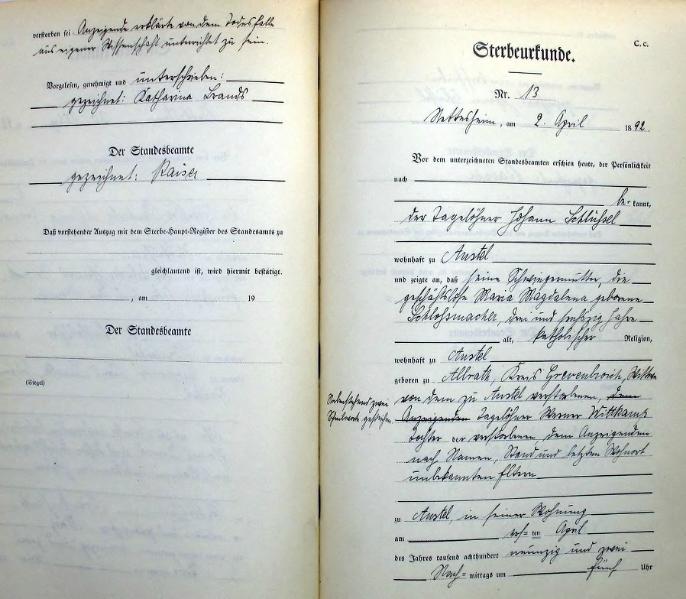 verstorben sei. Anzeigende erklärte von dem Todesfalle
aus eigener Wissenschaft unterrichtet zu sein.
Vorgelesen, genehmigt und unterschrieben:
gezeichnet: Katharina Brands
Der Standesbeamte
gezeichnet: Kaiser
Daß vorstehender Auszug mit dem Sterbe-Haupt-Register des Standesamts zu
gleichlautend ist, wird hiermit bestätigt.
, am 19
Der Standesbeamte
(Siegel)
C. c.
Sterbeurkunde.
Nr. 13
Nettesheim, am 2. April 1892.
Vor dem unterzeichneten Standesbeamten erschien heute, der Persönlichkeit
nach
be= kannt,
der Tagelöhner Johann Schlüssel
wohnhaft zu Anstel
und zeigte an, daß seine Schwiegermutter, die
geschäftslose Maria Magdalena geborene
Schlossmacher, drei und sechszig Jahre
alt, katholischer Religion,
wohnhaft zu Anstel
geboren zu Allrath, Kreis Grevenbroich, Wittwe
von dem zu Anstel verstorbenen, dem
Anzeigenden Tagelöhner Werner Wittkamp
Vorbenstehend zwei
gestrichen.
Tochter der verstorbenen dem Anzeigenden
nach Namen, Stand und letzten Wohnort
unbekannten Eltern
zu Anstel, in seiner Wohnung
am ten April
des Jahres tausend achthundert neunzig und zwei
Nach= mittags um fünf Uhr